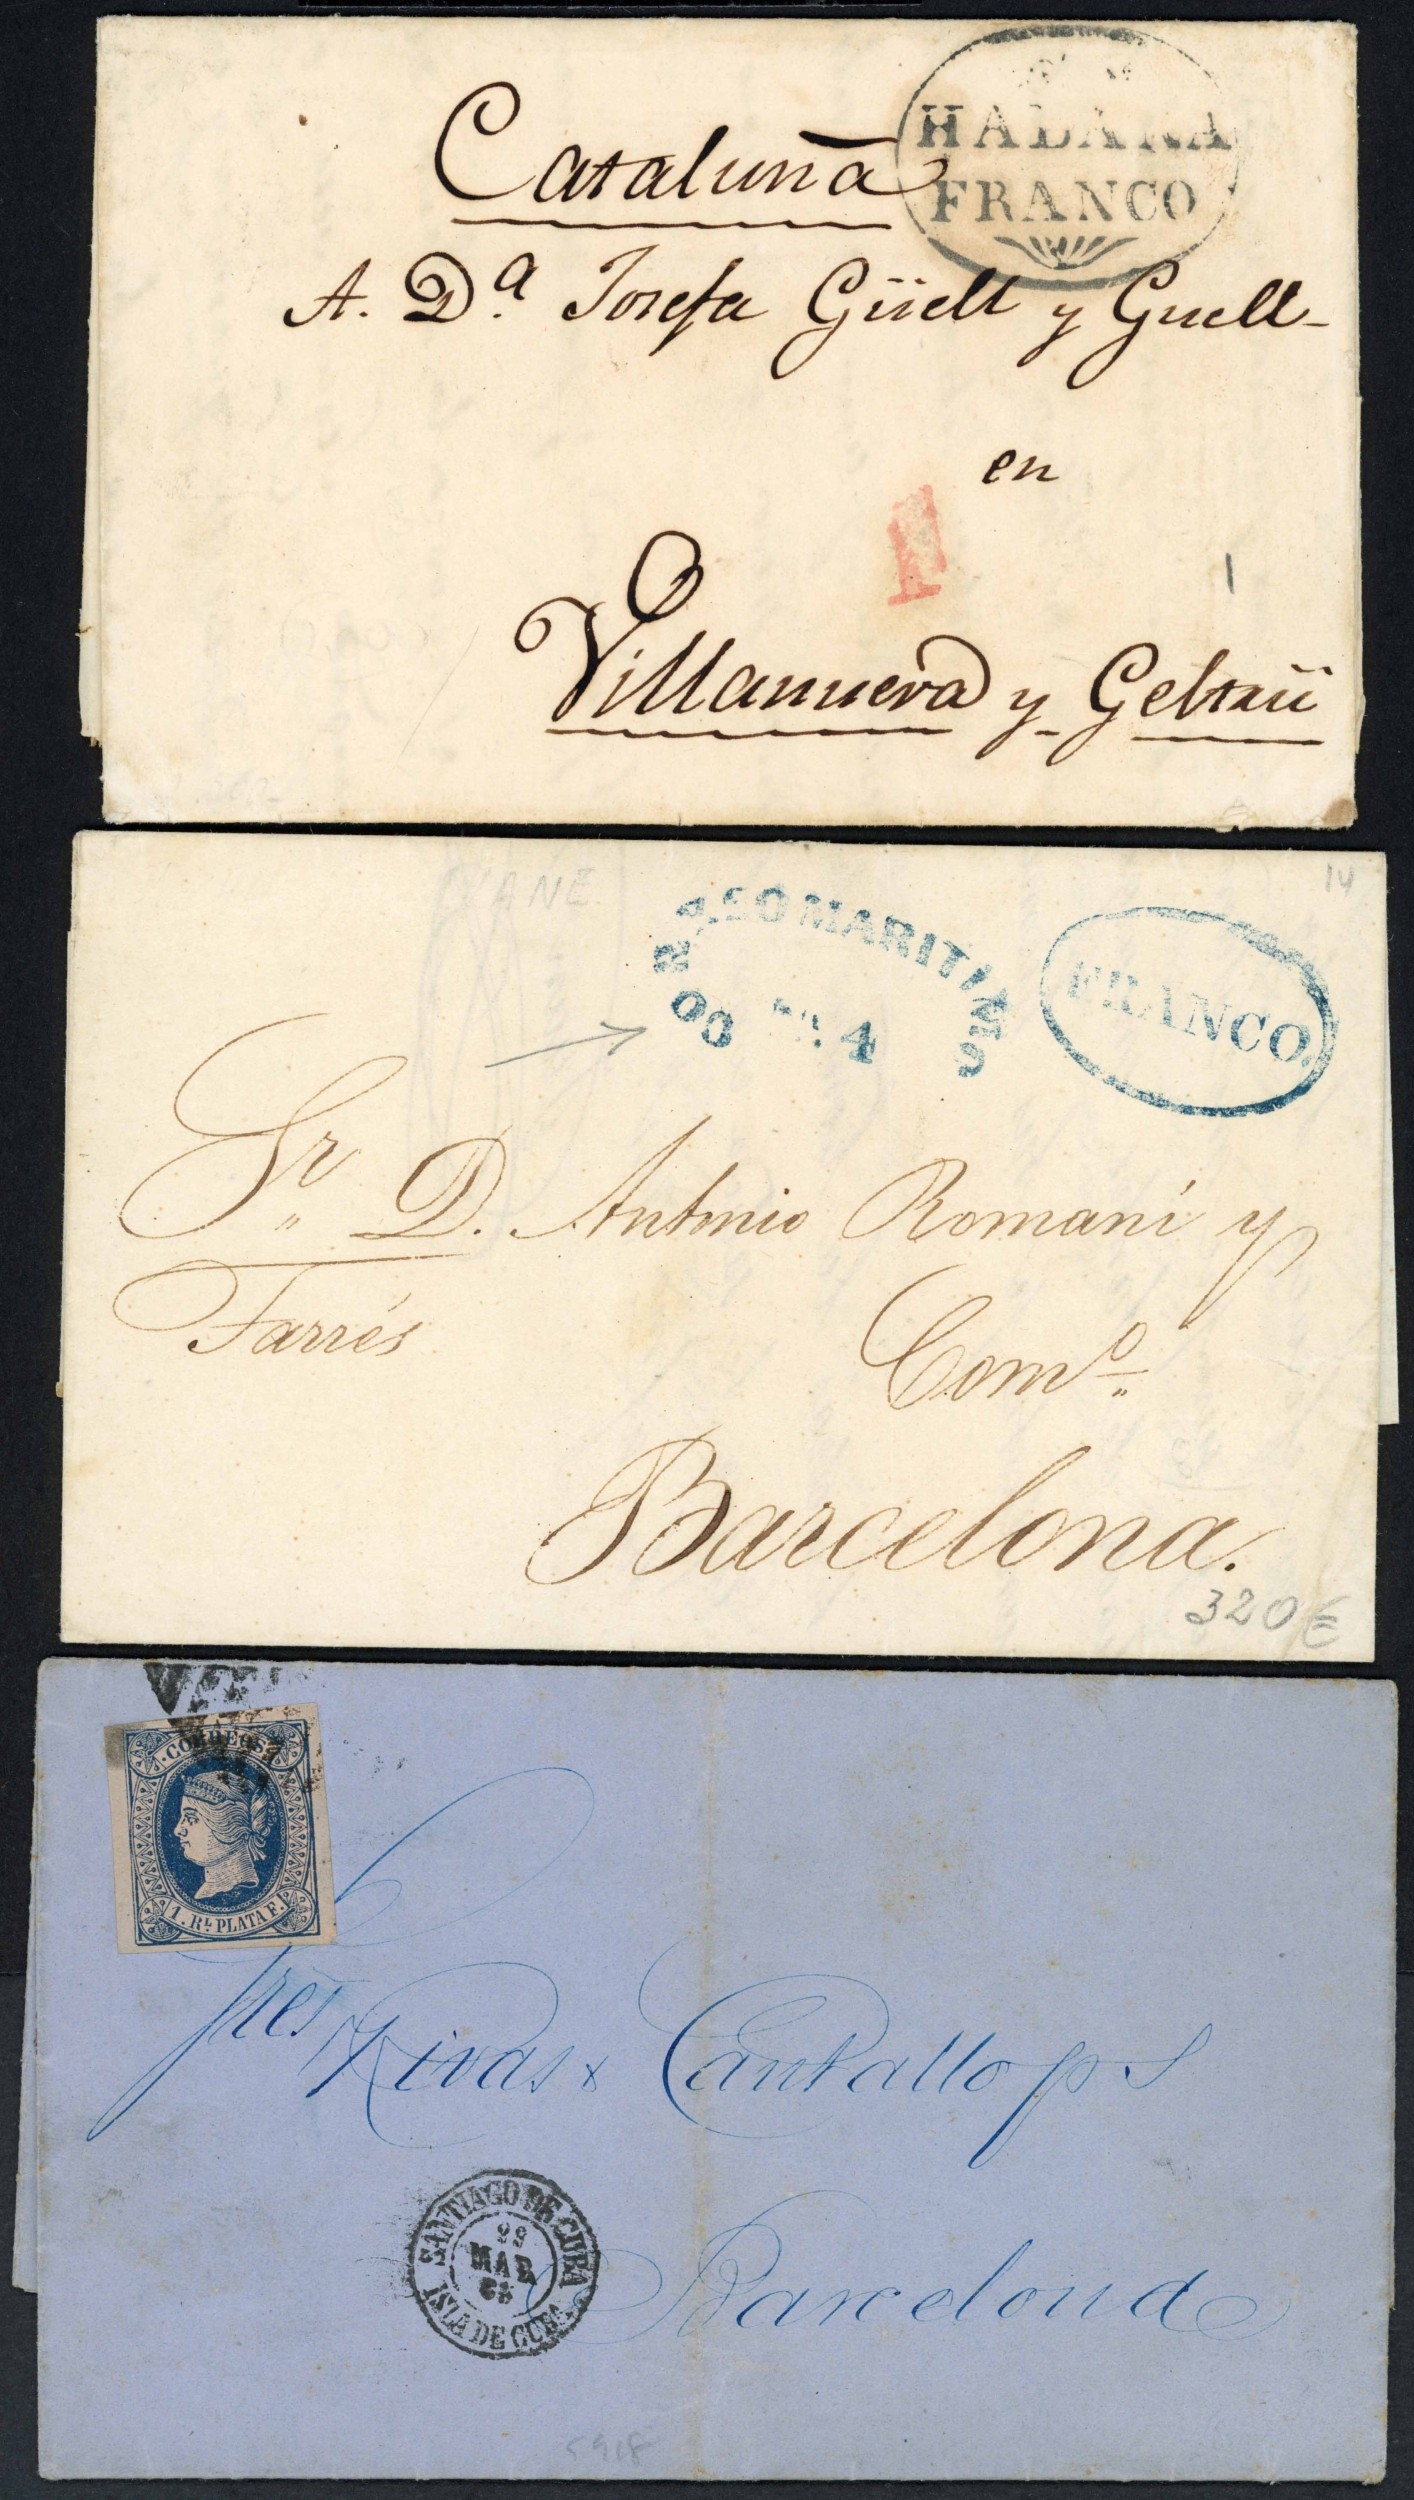 HABANA
FRANCO
Cataluña
A. D.ª Josefa Güell y Guell
en
1
Villanueva y Geltrú
14
CORREO MARITIMO
4
FRANCO.
Sr. D. Antonio Romaní y
Farrés
Comº
Barcelona.
320€
CORREOS
1. Rl. PLATA F.
Sres Rivas & Cantallops
SANTIAGO DE CUBA
MAR
ISLA DE CUBA
Barcelona
5918